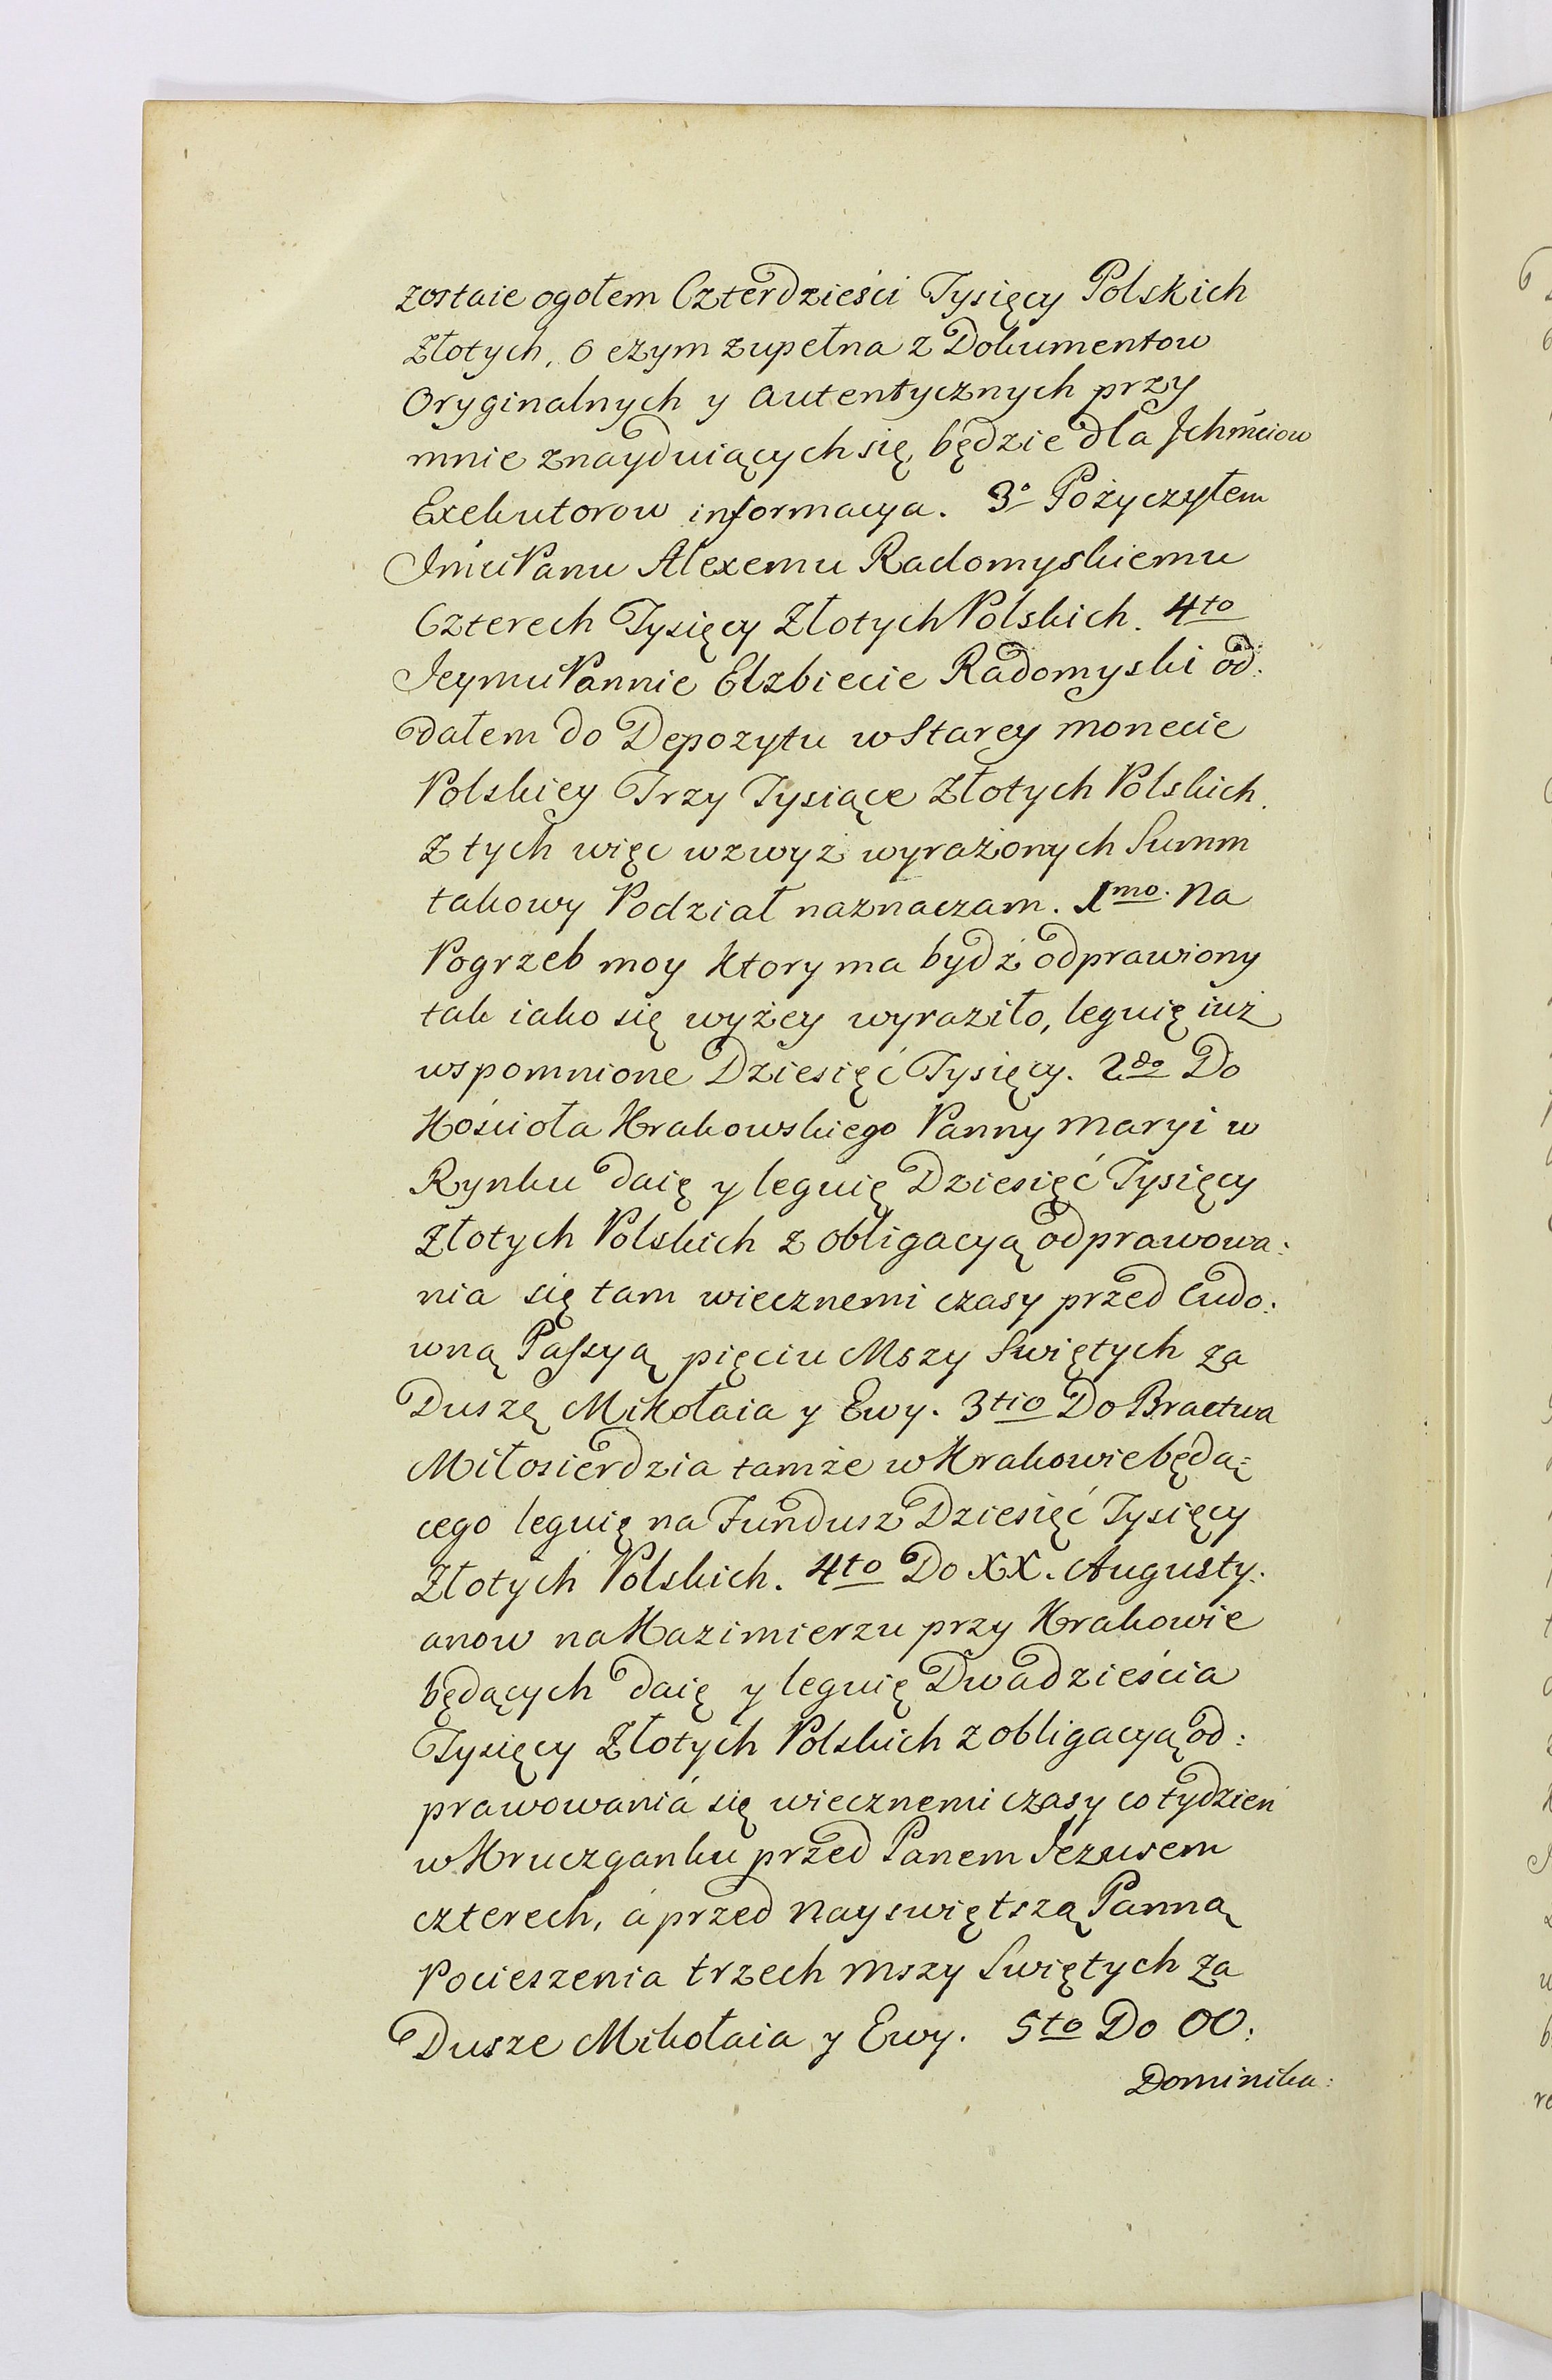 zostaie ogołem Czterdzieści Tysięcy Polskich
Złotych, o czym zupełna z Dokumentow
Oryginalnych y autentycznych przy
mnie znayduiących się będzie dla Jchmćiow
Exekutorow informacya. 3° Pożyczyłem
Jmći Panu Alexemu Radomyskiemu
Czterech Tysięcy Złotych Polskich. 4to
Jeymći Pannie Elzbiecie Radomyski od:
dałem do Depozytu w Starey monecie
Polskiey Trzy Tysiące Złotych Polskich.
Z tych więc wzwyż wyrażonych Summ
takowy Podział naznaczam. 1mo. Na
Pogrzeb moy Ktory ma bydź odprawiony
tak iako się wyżey wyraziło, leguię iuż
wspomnione Dziesięć Tysięcy. 2do Do
Kościoła Krakowskiego Panny Maryi w
Rynku daię y leguię Dziesięć Tysięcy
Złotych Polskich z obligacyą odprawowa:
nia się tam wiecznemi czasy przed Cudo:
wną Passyą pięciu Mszy Swiętych za
Duszę Mikołaia y Ewy. 3tio Do Bractwa
Miłosierdzia tamże w Krakowie będą:
cego leguię na Fundusz Dziesięć Tysięcy
Złotych Polskich. 4to Do XX. Augusty:
anow na Kazimierzu przy Krakowie
będących daię y leguię Dwadzieścia
Tysięcy Złotych Polskich z obligacyą od:
prawowania się wiecznemi czasy co tydzień
w Kruczganku przed Panem Jezusem
czterech, á przed Nayswiętszą Panną
Pocieszenia trzech Mszy Swiętych za
Dusze Mikołaia y Ewy. 5to Do OO:
Dominika: